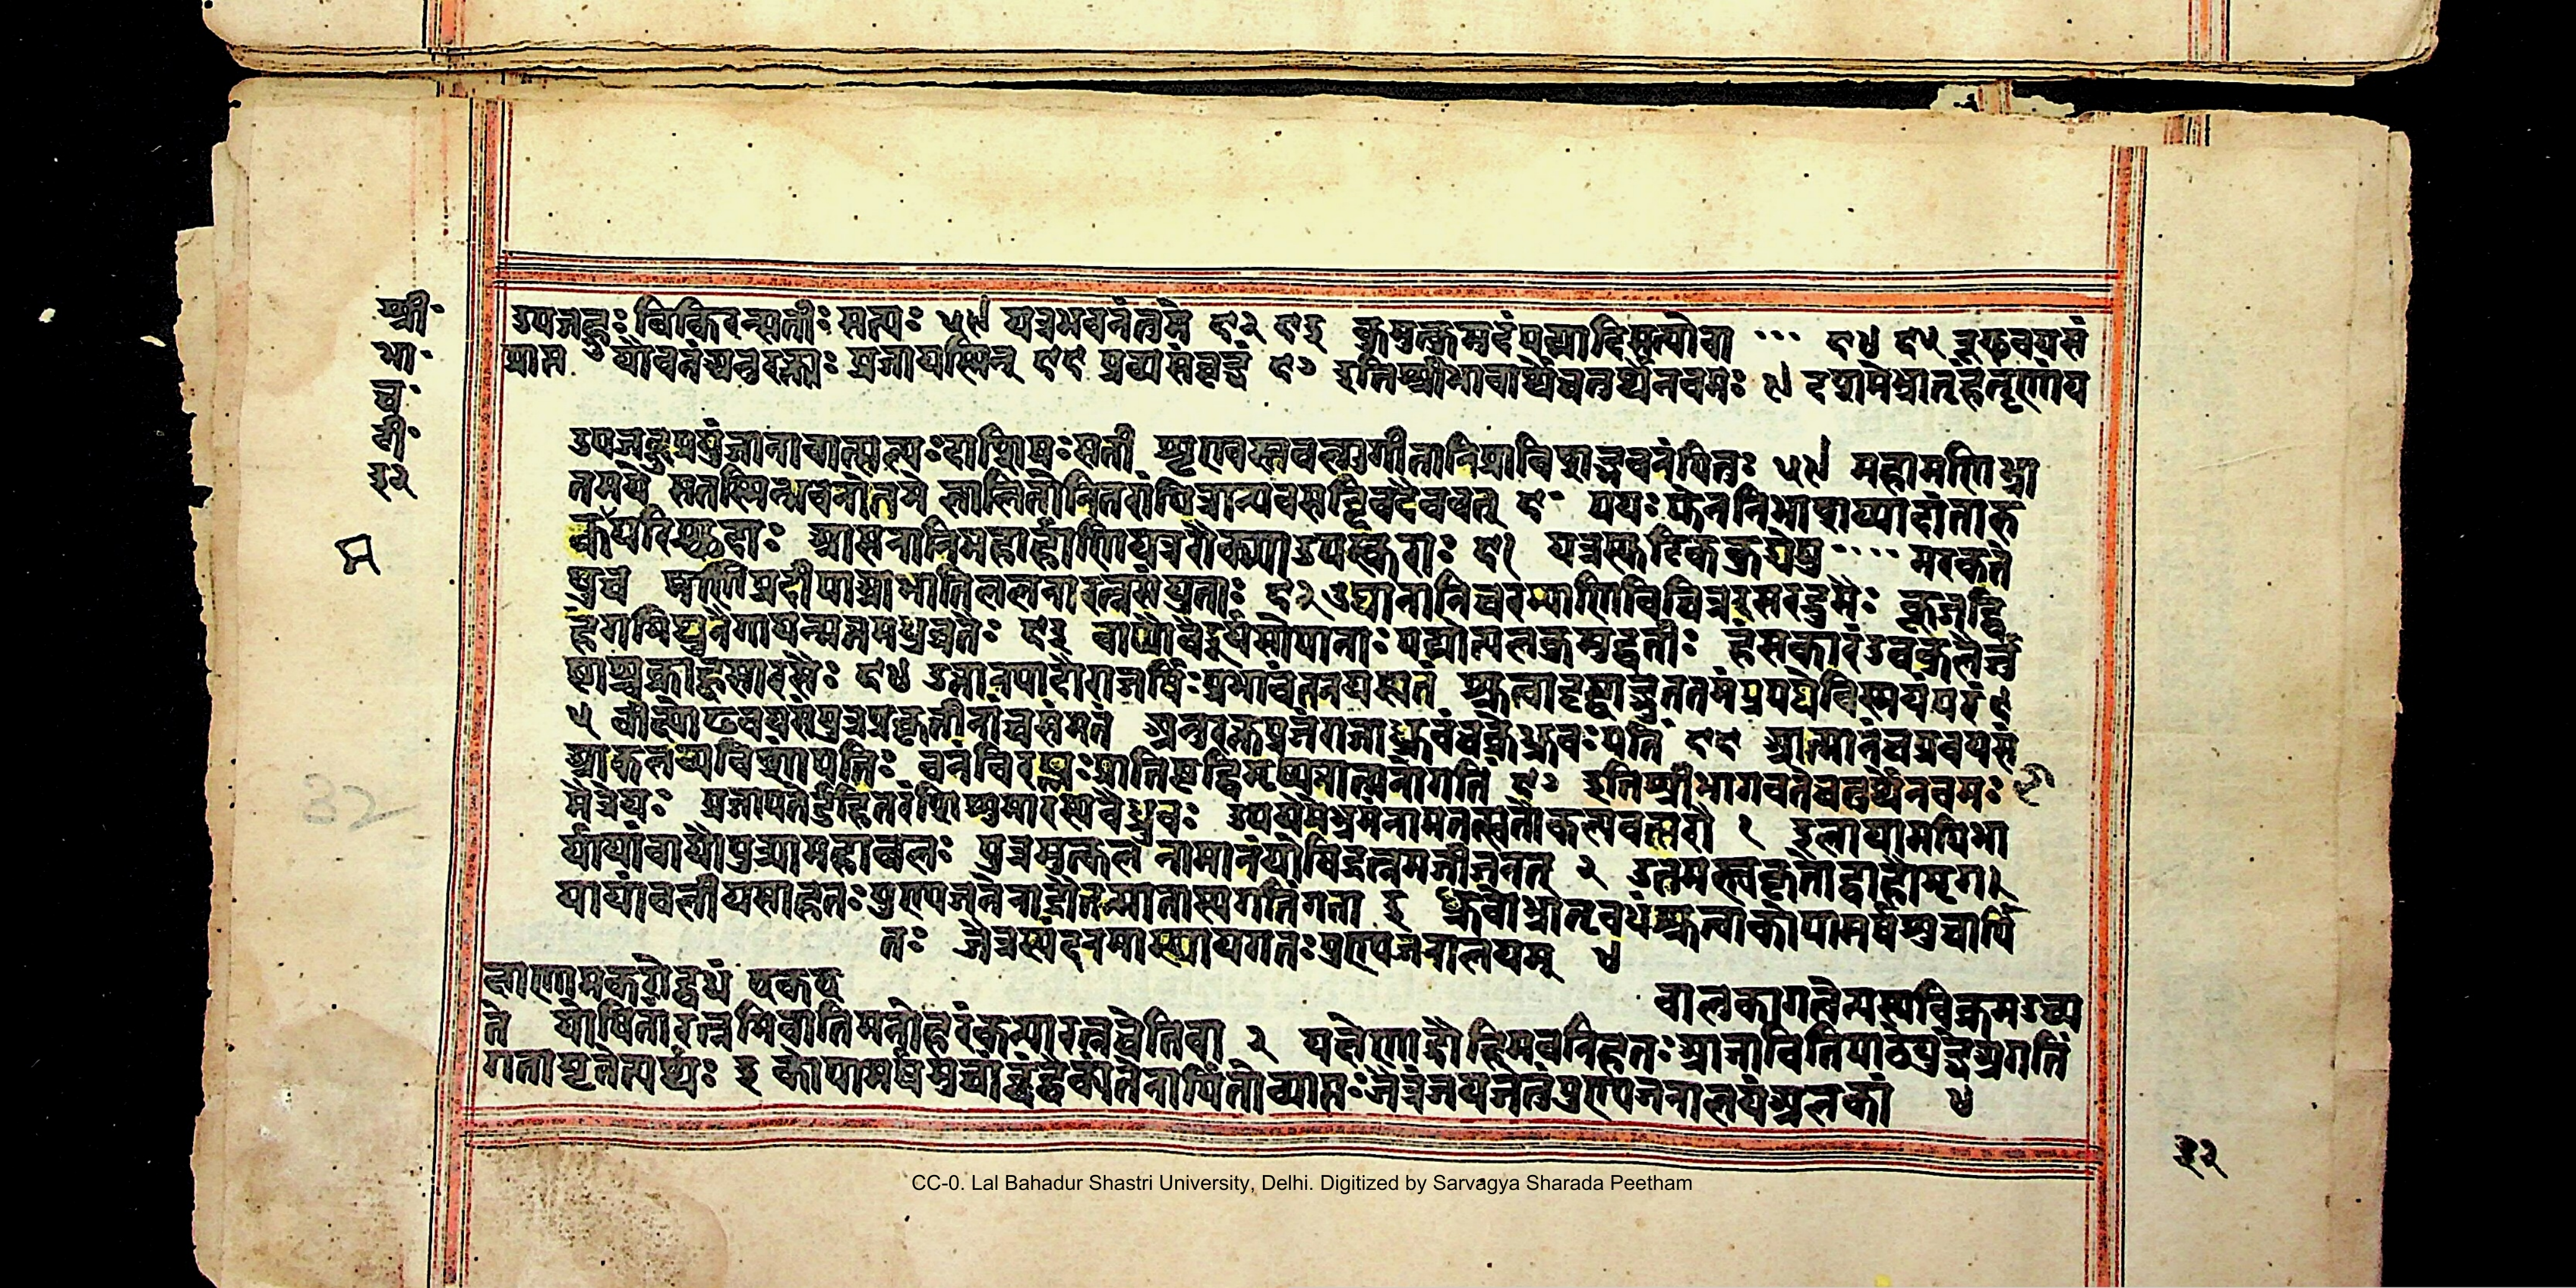 श्री॰
भा॰
च॰
टी॰
३२
उपजह्रुः विकिरन्त्यतीः सत्यः ५९ यत्रभवनंतत्रमे ६२ ६३ कुमुत्कुमुदंपद्मादिसत्योवा ... ६४ ६५ त्रूढवयसं
प्राप्त यौवनंच्यनुरक्ताः प्रजायस्मिन् ६६ प्रवयसंवृद्धं ६७ इतिश्रीभावार्थेचतुर्थेनवमः ९ दशमेभ्रातृहंतॄणांय
उपजह्रुःप्रयुंजानावात्सल्यःदाशिषःसती शृण्वंस्तद्वल्गुगीतानिप्राविशद्भवनंपितुः ५९ महामणिव्रा
तमये सतस्मिन्भवनोत्तमे लालितोनितरांपित्रान्यवसद्दिविदेववत् ६० पयःफेननिभाशय्यादांतारु
क्मपरिच्छदाः आसनानिमहार्हाणियत्ररौक्माउपस्कराः ६१ यत्रस्फटिककुड्येषु .... मरकते
षुच मणिप्रदीपाआभांतिललनारत्नसंयुताः ६२ उद्यानानिचरम्याणिविचित्रैरमरद्रुमैः कूजद्वि
हंगमिथुनैर्गायन्मत्तमधुव्रतैः ६३ वाप्योवैदूर्यसोपानाः पद्मोत्पलकुमुद्वतीः हंसकारंडवकुलैर्जु
ष्टाश्चक्राह्वसारसैः ६४ उत्तानपादोराजर्षिःप्रभावंतनयस्यतं श्रुत्वादृष्ट्वाद्भुततमंप्रपेदेविस्मयंपरं ६
५ वीक्ष्योढवयसंपुत्रंप्रकृतीनांचसंमतं अनुरक्तप्रजंराजाध्रुवंचक्रेभुवःपतिं ६६ आत्मानंचप्रवयसं
आकलय्यविशांपतिः वनंविरक्तःप्रातिष्ठद्विमृशन्नात्मनोगतिं ६७ इतिश्रीभागवतेचतुर्थेनवमः
मैत्रेयः प्रजापतेर्दुहितरंशिशुमारस्यवैध्रुवः उपयेमेभ्रमिंनामतत्सुतौकल्पवत्सरौ १ इलायामपिभा
र्यायांवायोःपुत्र्यांमहाबलः पुत्रमुत्कलनामानंयोषिद्रत्नमजीजनत् २ उत्तमस्त्वकृतोद्वाहोमृग
यायांबलीयसाहतःपुण्यजनेनाद्रौतन्मातास्यगतिंगता ३ ध्रुवोभ्रातृवधंश्रुत्वाकोपामर्षशुचार्पि
तः जैत्रंस्यंदनमास्थायगतःपुण्यजनालयम् ४
क्षाणामकरोद्वधं एकए
वालकांगत्वेत्यस्यविक्रमउच्य
ते योषितांरत्नमिवातिमनोहरंकन्यारत्नंचेतिवा २ यक्षेणाद्रौहिमवतिहतःप्राज्ञावितिपाठेयुद्धेअगतिं
गतामृतेत्यर्थः ३ कोपामर्षशुचांद्वंद्वैक्यंतेनार्पितोव्याप्तःजैत्रंजयजेतृंपुण्यजनालयंअलकां ४
32
३२
CC-0. Lal Bahadur Shastri University, Delhi. Digitized by Sarvagya Sharada Peetham